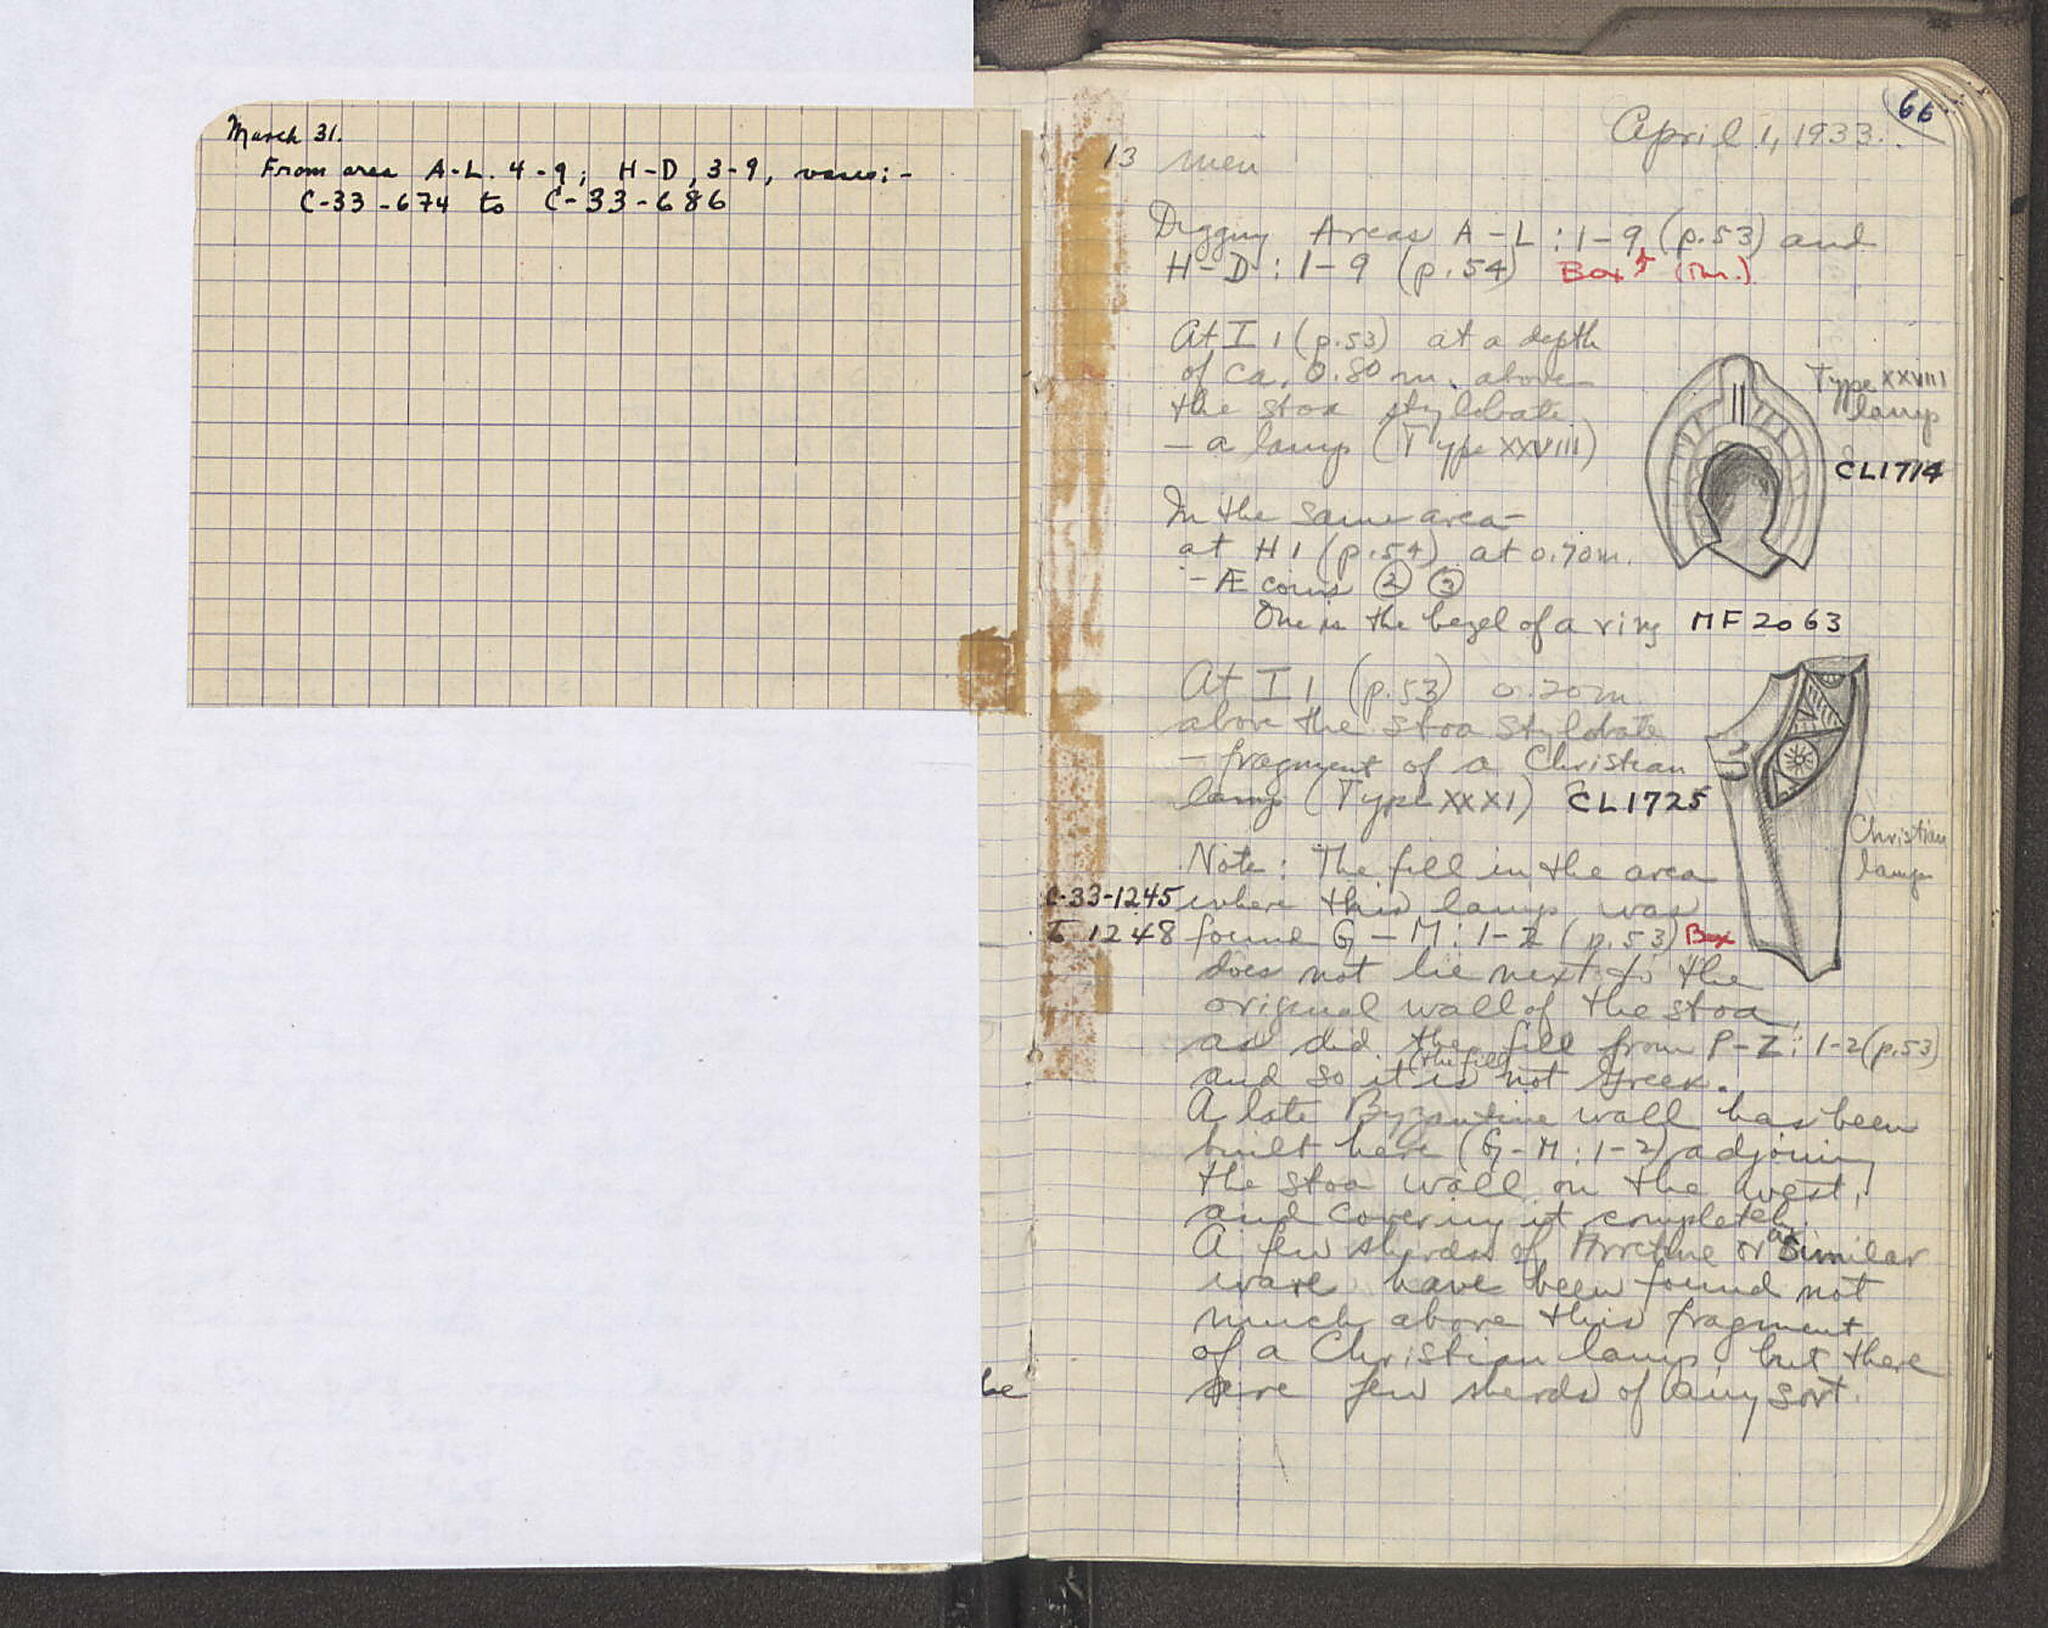 March 31.
From area A-L. 4-9; H-D, 3-9, vases:-
C-33-674 to C-33-686
66
April 1, 1933.
13 men
Digging Areas A-L: 1-9 (p.53) and
H-D: 1-9 (p.54) Box
At I 1 (p.53) at a depth
of ca. 0.80 m. above
the stoa stylobate
- a lamp (Type XXVIII)
Type XXVIII
lamp
CL1714
In the same area -
at H 1 (p.54) at 0.70m.
- Æ coins ② ③
One is the bezel of a ring MF 2063
At I 1 (p.53) 0.20 m
above the stoa stylobate
- fragment of a Christian
lamp (Type XXXI) CL1725
Christian
lamp
Note: The fill in the area
C-33-1245 where this lamp was
1248 found G-M: 1-2 (p.53) Box
does not lie next to the
original wall of the stoa,
as did the fill from P-Z: 1-2 (p.53)
and so it (the fill) is not Greek.
A late Byzantine wall has been
built here (G-M: 1-2) adjoining
the stoa wall on the west,
and covering it completely.
A few sherds of Arretine or a similar
ware have been found not
much above this fragment
of a Christian lamp, but there
are few sherds of any sort.
be